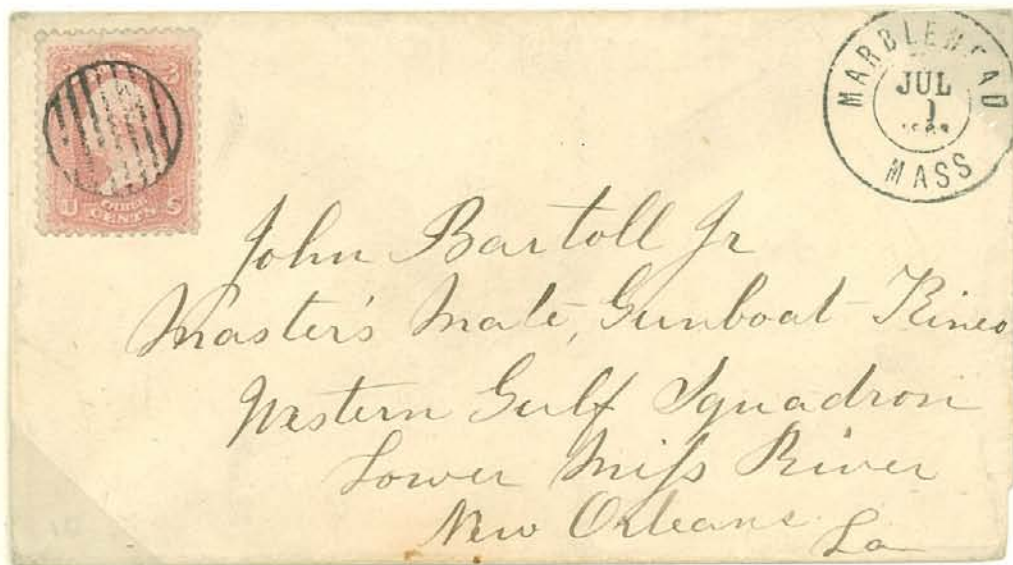 MARBLEHEAD
JUL
1
MASS
THREE
U CENTS S
John Bartoll Jr
Master's Mate, Gunboat Kineo
Western Gulf Squadron
Lower Miss River
New Orleans La